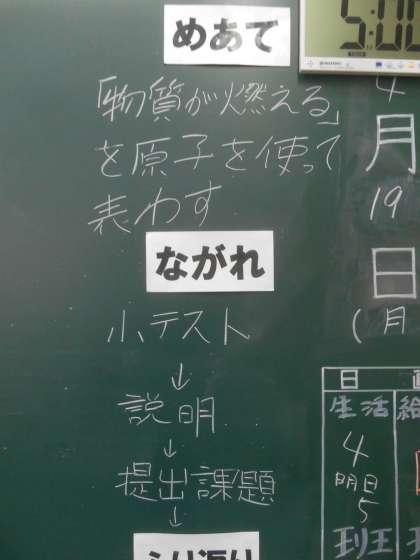 めあて
「物質が燃える」
を原子を使って
表わす
ながれ
小テスト
↓
説明
↓
提出課題
↓
ふり返り
5:00
4
月
19
日
(月
日
生活
給
4
明日
5
班